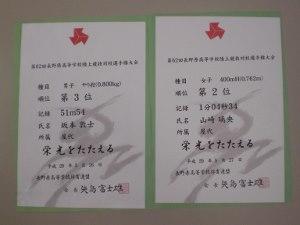 第62回長野県高等学校陸上競技対校選手権大会
種目 男子 やり投(0.800kg)
順位 第3位
記録 51m54
氏名 坂本 敦士
所属 屋代
栄光をたたえる
平成29年5月26日
長野県高等学校体育連盟
会長 矢島富士雄
第62回長野県高等学校陸上競技対校選手権大会
種目 女子 400mH(0.762m)
順位 第2位
記録 1分04秒34
氏名 山崎 瑞央
所属 屋代
栄光をたたえる
平成29年5月27日
長野県高等学校体育連盟
会長 矢島富士雄